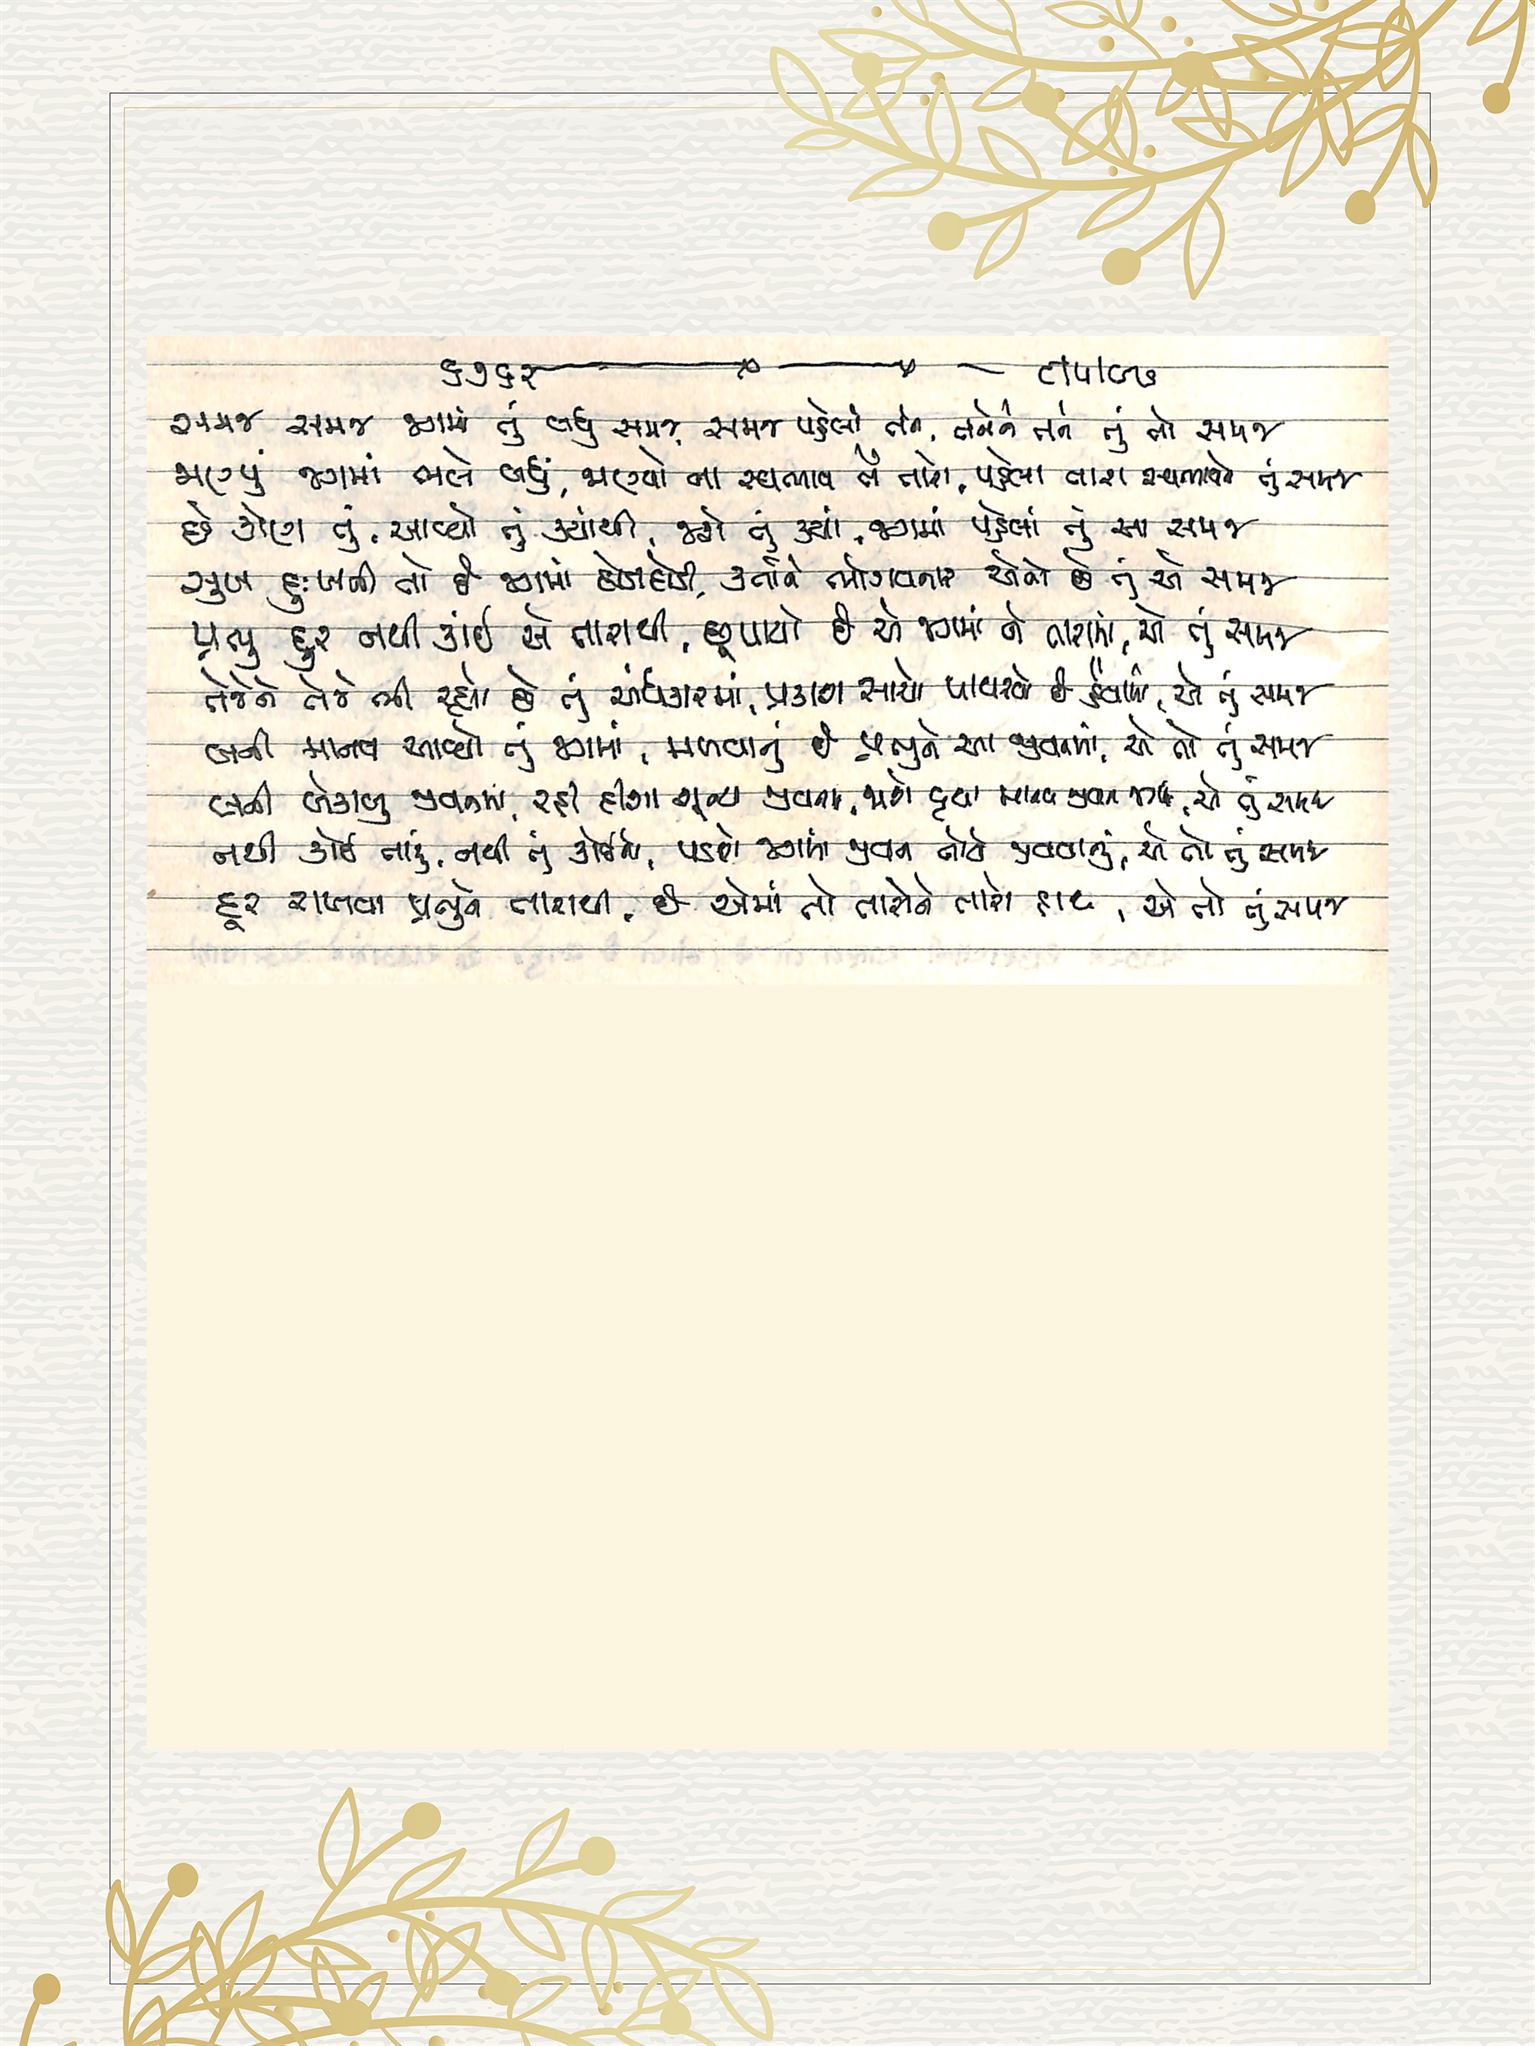 ૬૭૬૨ ૮/૫/૯૭
સમજ સમજ જગમાં તું બધું સમજ, સમજ પહેલાં તને, તનેને તને તું તો સમજ
જાણ્યું જગમાં ભલે બધું, જાણ્યો ના સ્વભાવ તેં તારો, પહેલા તારા સ્વભાવને તું સમજ
છે કોણ તું, આવ્યો તું ક્યાંથી, જાશે તું ક્યાં, જગમાં પહેલાં તું આ સમજ
સુખ દુઃખની તો છે જગમાં હોડાહોડી, કર્તાને ભોગવનાર એનો છે તું એ સમજ
પ્રભુ દુર નથી કાંઈ એ તારાથી, છૂપાયો છે એ જગમાં ને તારામાં, એ તું સમજ
તેજેને તેજે રહ્યો છે તું અંધકારમાં, પ્રકાશ સાચો પાથરવો છે હૈયામાં, એ તું સમજ
બની માનવ આવ્યો તું જગમાં, મળવાનું છે પ્રભુને આ જીવનમાં, એ તો તું સમજ
બની બેકાબુ જીવનમાં, રહી દીશા શૂન્ય જીવનમાં, જાશે વૃથા માનવ જીવન જગમાં, એ તું સમજ
નથી કોઈ તારું, નથી તું કોઈનો, પડશે જગમાં જીવન તોયે જીવવાનું, એ તો તું સમજ
દૂર રાખવા પ્રભુને તારાથી, છે એમાં તો તારોને તારો હાથ, એ તો તું સમજ